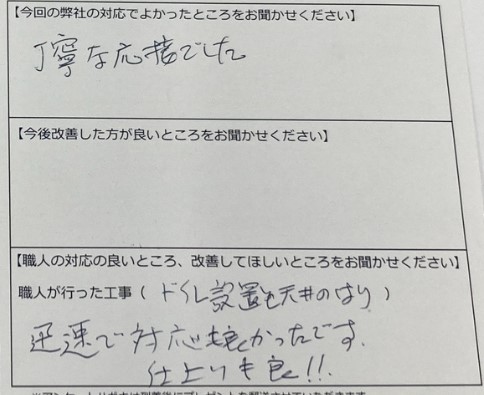 【今回の弊社の対応でよかったところをお聞かせください】
丁寧な応接でした
【今後改善した方が良いところをお聞かせください】
【職人の対応の良いところ、改善してほしいところをお聞かせください】
職人が行った工事（トイレ設置と天井のはり）
迅速で対応も良かったです。
仕上りも良し!!